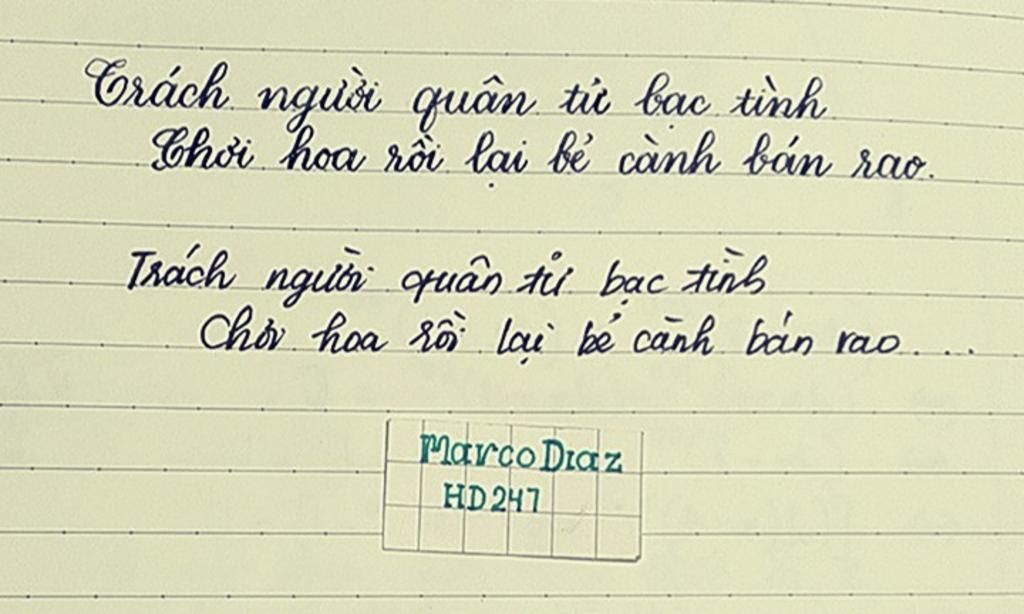 Trách người quân tử bạc tình
Chơi hoa rồi lại bẻ cành bán rao.
Trách người quân tử bạc tình
Chơi hoa rồi lại bẻ cành bán rao....
Marco Diaz
HD247